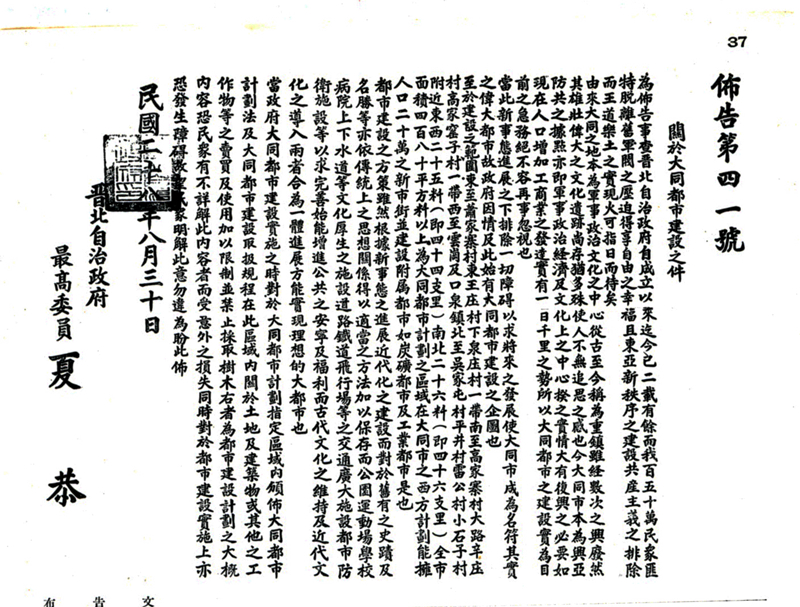 37
佈告第四一號
關於大同都市建設之件
為佈告事查晉北自治政府自成立以來迄今已二載有餘而我百五十萬民衆匪
特脫離舊軍閥之壓迫得享自由之幸福且東亞新秩序之建設共産主義之排除
而王道樂土之實現大可指日而待矣
由來大同之地本為軍事政治文化之中心從古至今稱為重鎮雖經數次之興廢然
其雄壯偉大之文化遺跡尚存猶多殊使人不無追思之感也今大同市本為興亞
防共之據點亦即軍事政治經濟及文化上之中心揆之實情大有復興之必要如
現在人口增加工商業之發達實有一日千里之勢所以大同都市之建設實為目
前之急務絕不容再事忽視也
當此新事態進展之下排除一切障碍以求將來之發展使大同市成為名符其實
之偉大都市故政府因情及此始有大同都市建設之企圖也
至於建設之範圍東至蕭家寨村東王庄村下泉庄村一帶南至高家寨村大路辛庄
村高家窰子村一帶西至雲崗及口泉鎮北至吳家屯村平井村雷公村小石子村
附近東西二十五粁（即四十四支里）南北二十六粁（即四十六支里）全市
面積四百八十平方粁以上為大同都市計劃之區域在大同市之西方計劃能擁
人口二十萬之新市街並建設附属都市如炭礦都市及工業都市是也
都市建設之方策雖然根據新事態之進展近代化之建設而對於舊有之史蹟及
名勝等亦依傳統上之思想關係得以適當之方法加以保存而公園運動場學校
病院上下水道等文化厚生之施設道路鐵道飛行場等之交通廣大施設都市防
衛施設等以求完善始能增進公共之安寧及福利而古代文化之維持及近代文
化之導入兩者合為一體進展方能實現理想的大都市也
當政府大同都市建設實施之時對於大同都市計劃指定區域內頒佈大同都市
計劃法及大同都市建設取扱規程在此區域內關於土地及建築物或其他之工
作物等之賣買及使用加以限制並禁止採取樹木右者為都市建設計劃之大概
內容恐民衆有不詳解此內容者而受意外之損失同時對於都市建設實施上亦
恐發生障碍 民衆明解此意勿違為盼此佈
民國二十八年八月三十日
晉北自治政府
最高委員夏恭
布告文